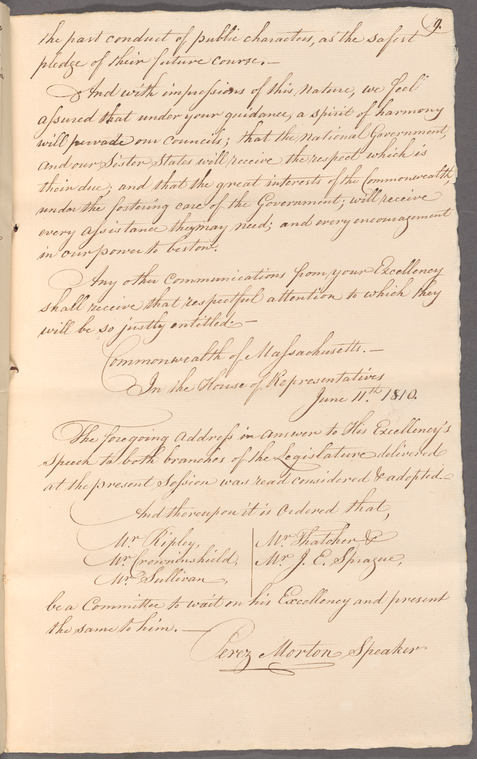 9.
the past conduct of public characters, as the safest
pledge of their future course.—
And with impressions of this nature, we feel
assured that under your guidance, a spirit of harmony
will pervade our councils; that the National Government,
and our Sister States will receive the respect which is
their due, and that the great interests of the Commonwealth,
under the fostering care of the Government; will receive
every assistance they may need; and every encouragement
in our power to bestow.
Any other Communications from your Excellency
shall receive that respectful attention to which they
will be so justly entitled.—
Commonwealth of Massachusetts.—
In the House of Representatives
June 11th. 1810.
The foregoing Address in answer to His Excellency's
Speech to both branches of the Legislature delivered
at the present Session was read considered & adopted.
And thereupon it is Ordered that,
Mr Ripley, Mr Thatcher &
Mr Crowninshield, Mr J. E. Sprague,
Mr Sullivan,
be a Committee to wait on his Excellency and present
the same to him.—
Perez Morton Speaker